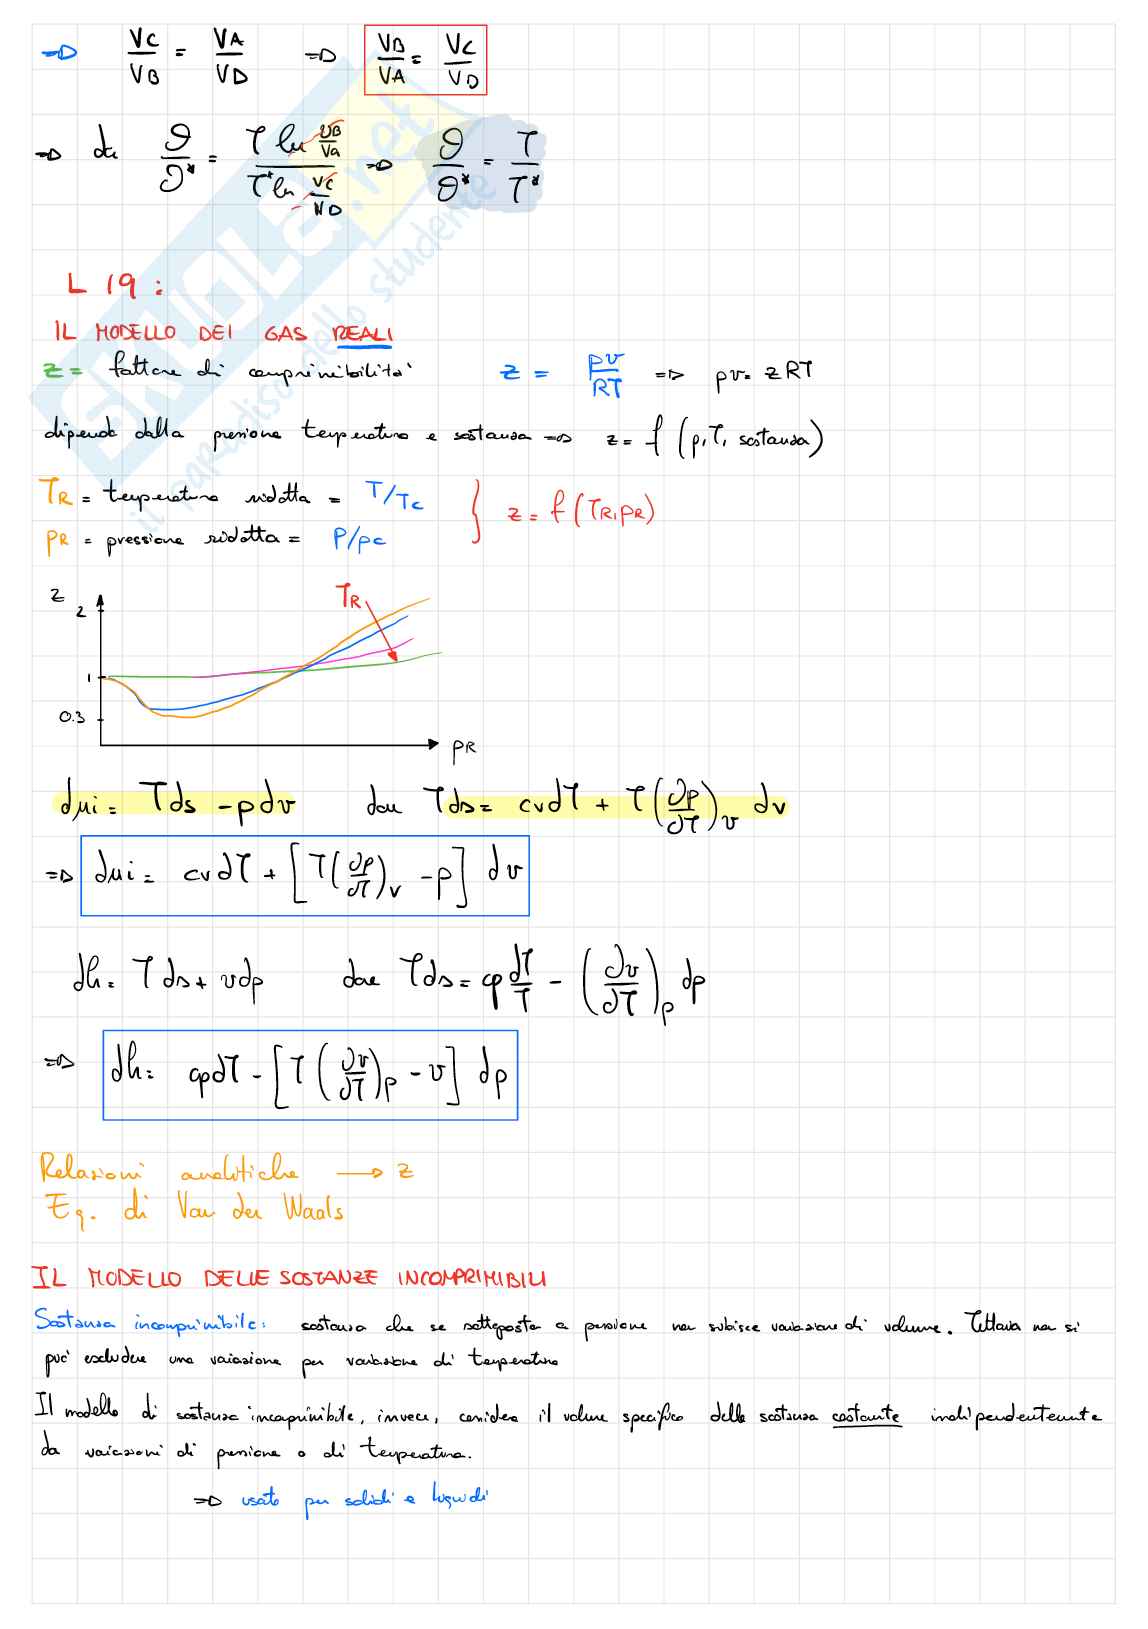 => VC/VB = VA/VD => VB/VA = VC/VD
=> da ϑ/ϑ* = T ln VB/Va / T* ln VC/VD => ϑ/ϑ* = T/T*
L 19 :
IL MODELLO DEI GAS REALI
z = fattore di comprimibilità z = pv/RT => pv = zRT
dipende dalla pressione temperatura e sostanza => z = f (p, T, sostanza)
TR = temperatura ridotta = T/Tc } z = f (TR, pR)
pR = pressione ridotta = P/pc
z
TR
2
1
0.3
pR
dui = Tds - pdv dove Tds = cvdT + T(∂p/∂T)v dv
=> dui = cvdT + [T(∂p/∂T)v - p] dv
dh = Tds + vdp dove Tds = cp dT/T - (∂v/∂T)p dp
=> dh = cpdT - [T(∂v/∂T)p - v] dp
Relazioni analitiche → z
Eq. di Van der Waals
IL MODELLO DELLE SOSTANZE INCOMPRIMIBILI
Sostanza incomprimibile: sostanza che se sottoposta a pressione non subisce variazione di volume. Tuttavia non si
può escludere una variazione per variazione di temperatura
Il modello di sostanza incomprimibile, invece, considera il volume specifico della sostanza costante indipendentemente
da variazioni di pressione o di temperatura.
=> usato per solidi e liquidi
SKUOLA.net
il paradiso dello studente